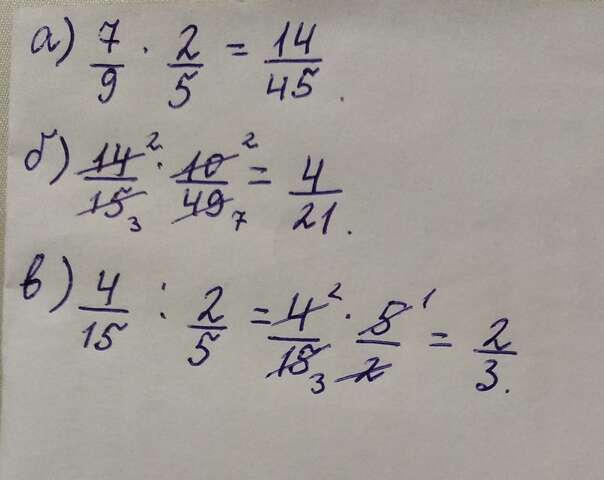 а) 7/9 · 2/5 = 14/45.
б) 14²/15₃ · 10²/49₇ = 4/21.
в) 4/15 : 2/5 = 4²/15₃ · 5¹/2 = 2/3.